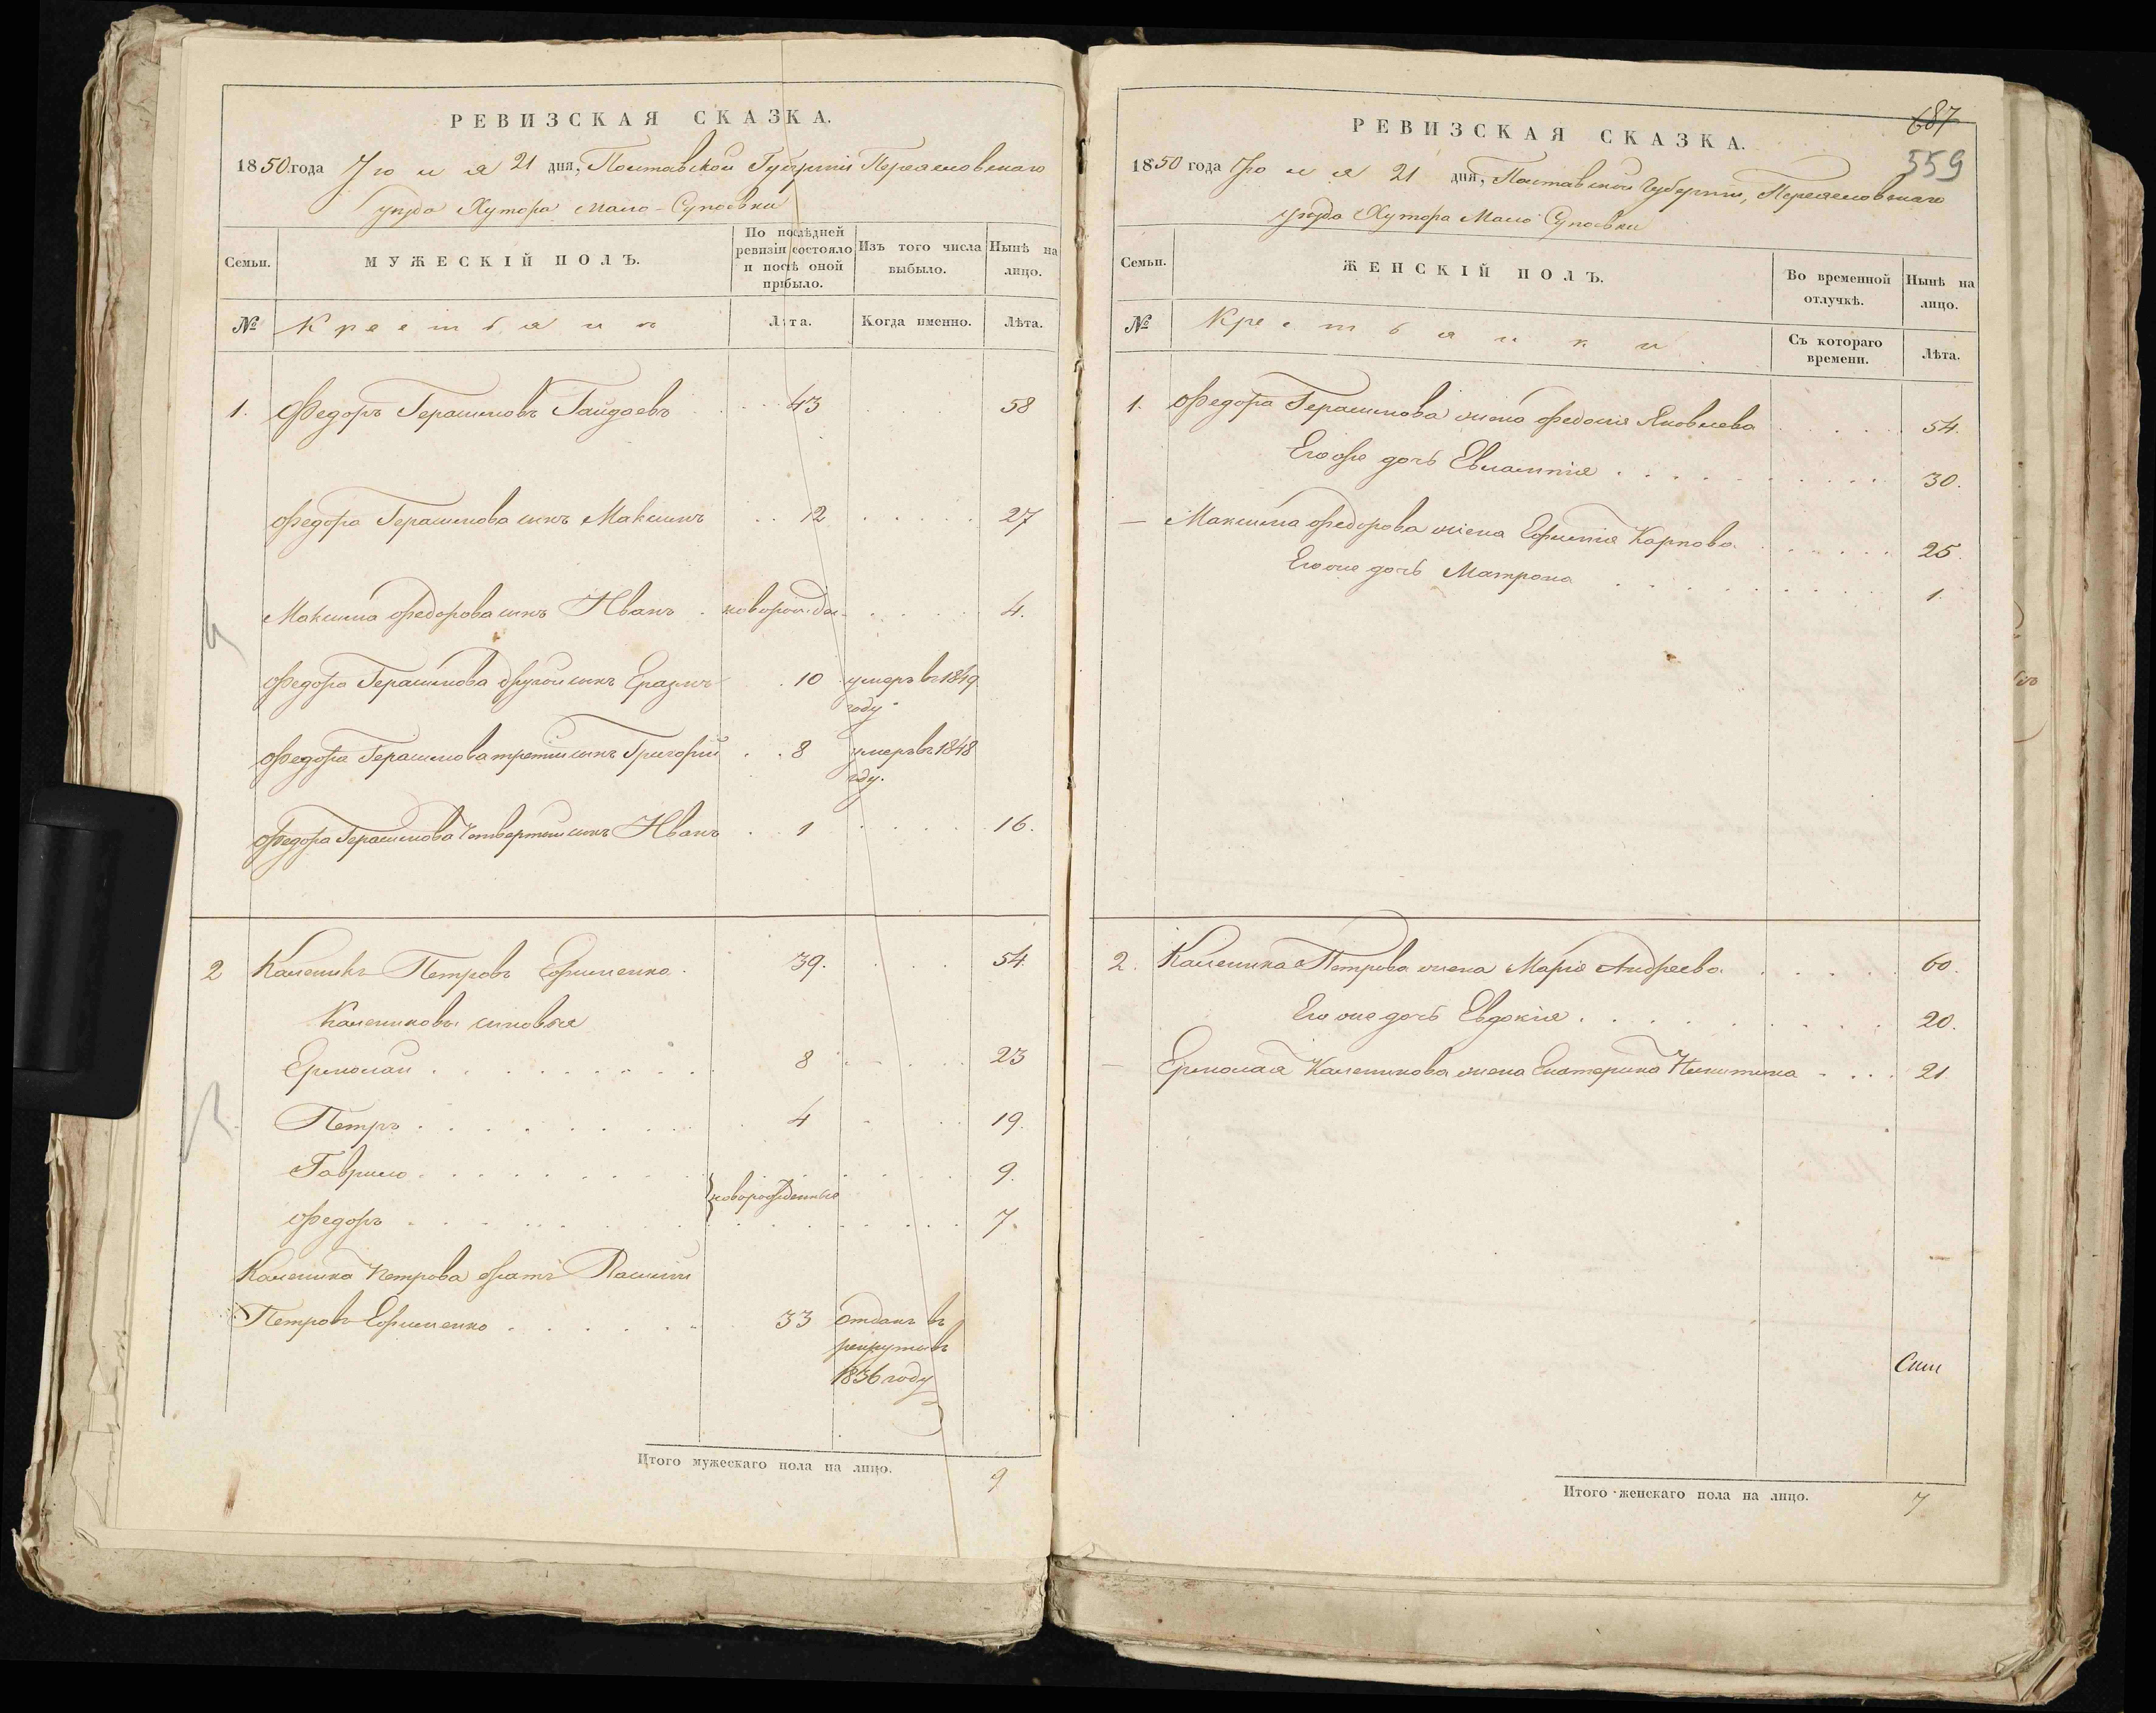 РЕВИЗСКАЯ СКАЗКА.
1850 года Июля 21 дня, Полтавской Губернiи Переяславскаго
уѣзда Хутора Мало-Супоевки
Семьи.
МУЖЕСКІЙ ПОЛЪ.
По послѣдней ревизіи состояло и послѣ оной прибыло.
Изъ того числа выбыло.
Нынѣ на лицо.
№ Крестьянъ Лѣта. Когда именно. Лѣта.
1. Федоръ Герасимовъ Гайдаевъ 43 58
Федора Герасимова сынъ Максимъ 12 27
Максима Федорова сынъ Иванъ новорожде. 4.
Федора Герасимова другой сынъ Еразмъ 10 умеръ въ 1849
году
Федора Герасимова третий сынъ Григорий 8 умеръ въ 1848
году.
Федора Герасимова Четвертый сынъ Иванъ 1 16.
2 Каленикъ Петровъ Ефименко 39. 54
Калениковы сыновья
Ермолай 8 23
Петръ 4 19.
Гаврило 9.
новорожденные
Федоръ 7.
Каленика Петрова братъ
Петровъ Ефименко 33 отданъ въ
рекруты въ
1836 году
Итого мужескаго пола на лицо. 9
687
559
РЕВИЗСКАЯ СКАЗКА.
1850 года Июля 21 дня, Полтавской Губернiи, Переяславскаго
уѣзда Хутора Мало Супоевки
Семьи.
ЖЕНСКІЙ ПОЛЪ.
Во временной отлучкѣ.
Нынѣ на лицо.
№ Крестьянки Съ котораго времени. Лѣта.
1. Федора Герасимова жена Федосия Яковлева 54.
Его же дочь Евлампия 30.
— Максима Федорова жена Ефимия Карпова 25.
Его же дочь Матрона 1.
2. Каленика Петрова жена Мария Андреева 60.
Его же дочь Евдокия 20.
— Ермолая Каленикова жена Екатерина Никитина 21.
Итого женскаго пола на лицо. 7